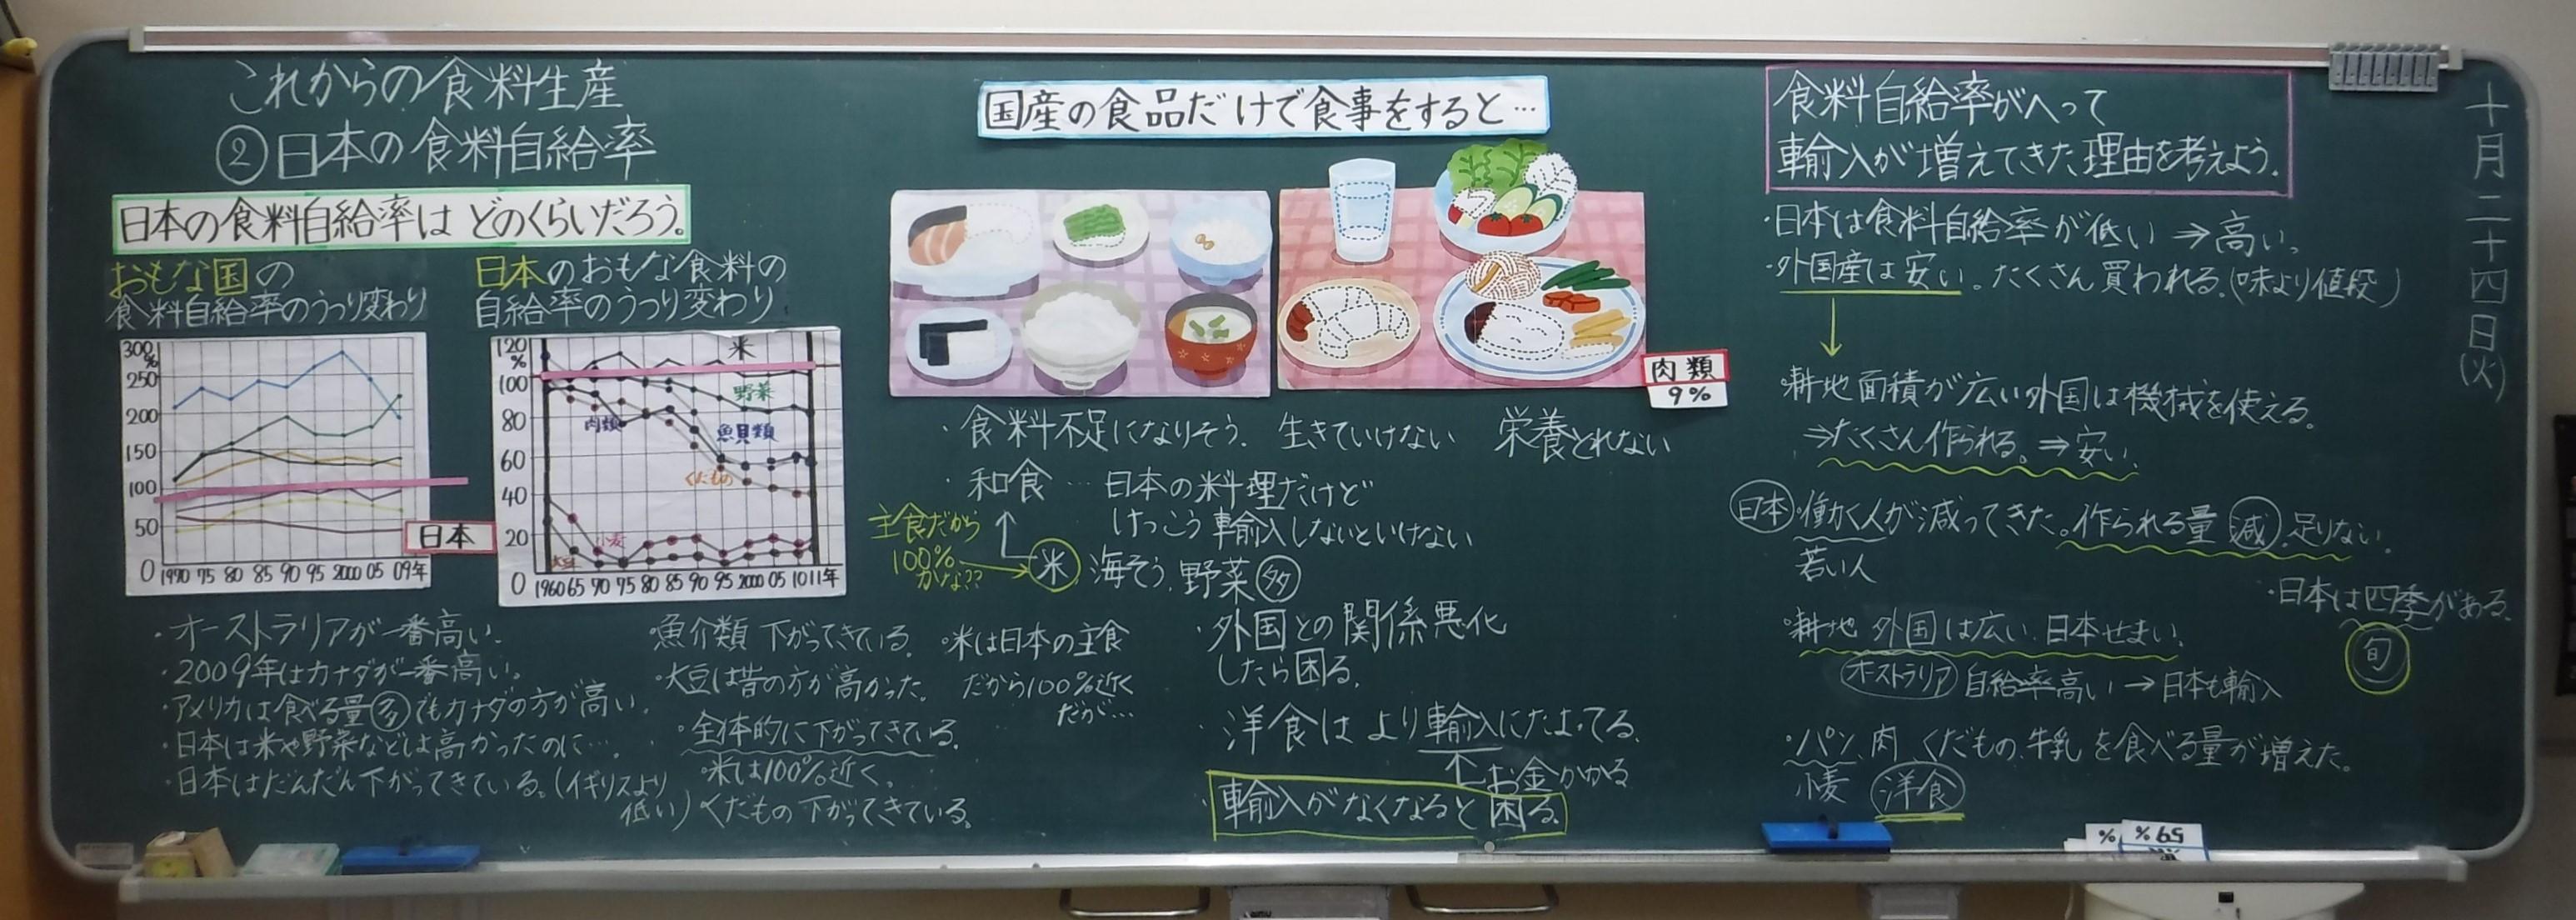 これからの食料生産
②日本の食料自給率
日本の食料自給率は どのくらいだろう。
おもな国の
食料自給率のうつり変わり
300
%
250
200
150
100
50
0
1970 75 80 85 90 95 2000 05 09年
日本
日本のおもな食料の
自給率のうつり変わり
120
%
100
80
60
40
20
0
1960 65 70 75 80 85 90 95 2000 05 10 11年
米
野菜
肉類
魚貝類
くだもの
小麦
大豆
・オーストラリアが一番高い。
・2009年はカナダが一番高い。
・アメリカは食べる量多でもカナダの方が高い。
・日本は米や野菜などは高かったのに…
・日本はだんだん下がってきている。(イギリスより
低い)
・魚介類 下がってきている。
・大豆は昔の方が高かった。
・全体的に下がってきている。
・米は100%近く。
くだもの下がってきている。
・米は日本の主食
だから100%近く
だが…
国産の食品だけで食事をすると…
肉類
9%
・食料不足になりそう。 生きていけない 栄養とれない
・和食 … 日本の料理だけど
けっこう輸入しないといけない
主食だから
100%
かな??
米 海そう、野菜 多
・外国との関係悪化
したら困る。
・洋食は より輸入にたよってる。
お金かかる
・輸入がなくなると困る。
食料自給率がへって
輸入が増えてきた理由を考えよう。
・日本は食料自給率が低い ⇒ 高い。
・外国産は安い。たくさん買われる。(味より値段)
・耕地面積が広い外国は機械を使える。
⇒たくさん作られる。⇒安い。
日本・働く人が減ってきた。作られる量 減 足りない。
若い人
・日本は四季がある。
旬
・耕地 外国は広い 日本せまい。
オーストラリア 自給率高い → 日本も輸入
・パン、肉 くだもの、牛乳を食べる量が増えた。
小麦 洋食
十月二十四日(火)
%
59%